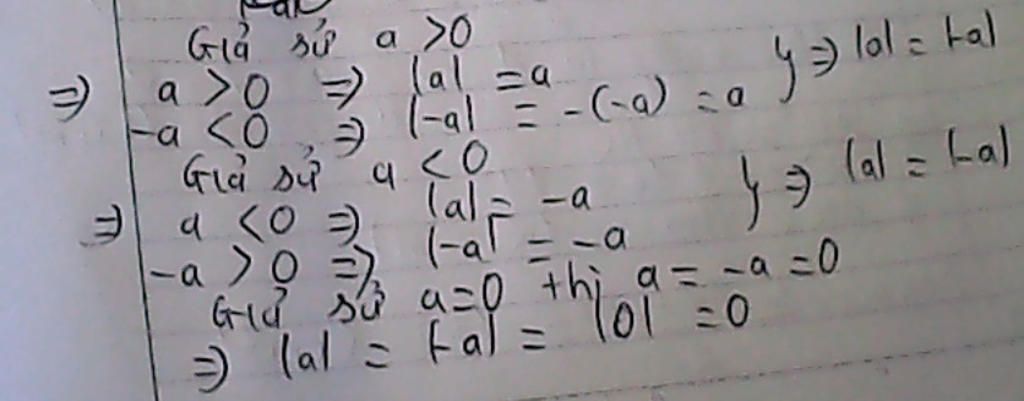 Giả sử a >0
⇒ a >0 ⇒ |a| =a } ⇒ |a| = |-a|
-a <0 ⇒ |-a| = -(-a) = a
Giả sử a <0
⇒ a <0 ⇒ |a| = -a } ⇒ |a| = |-a|
-a >0 ⇒ |-a| = -a
Giả sử a=0 thì a = -a =0
⇒ |a| = |-a| = |0| =0